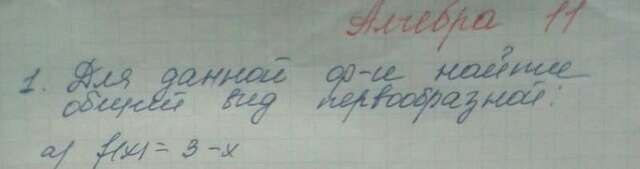 Алгебра 11
1. Для данной ф-и найти
общий вид первообразной:
а) f(x) = 3 - x